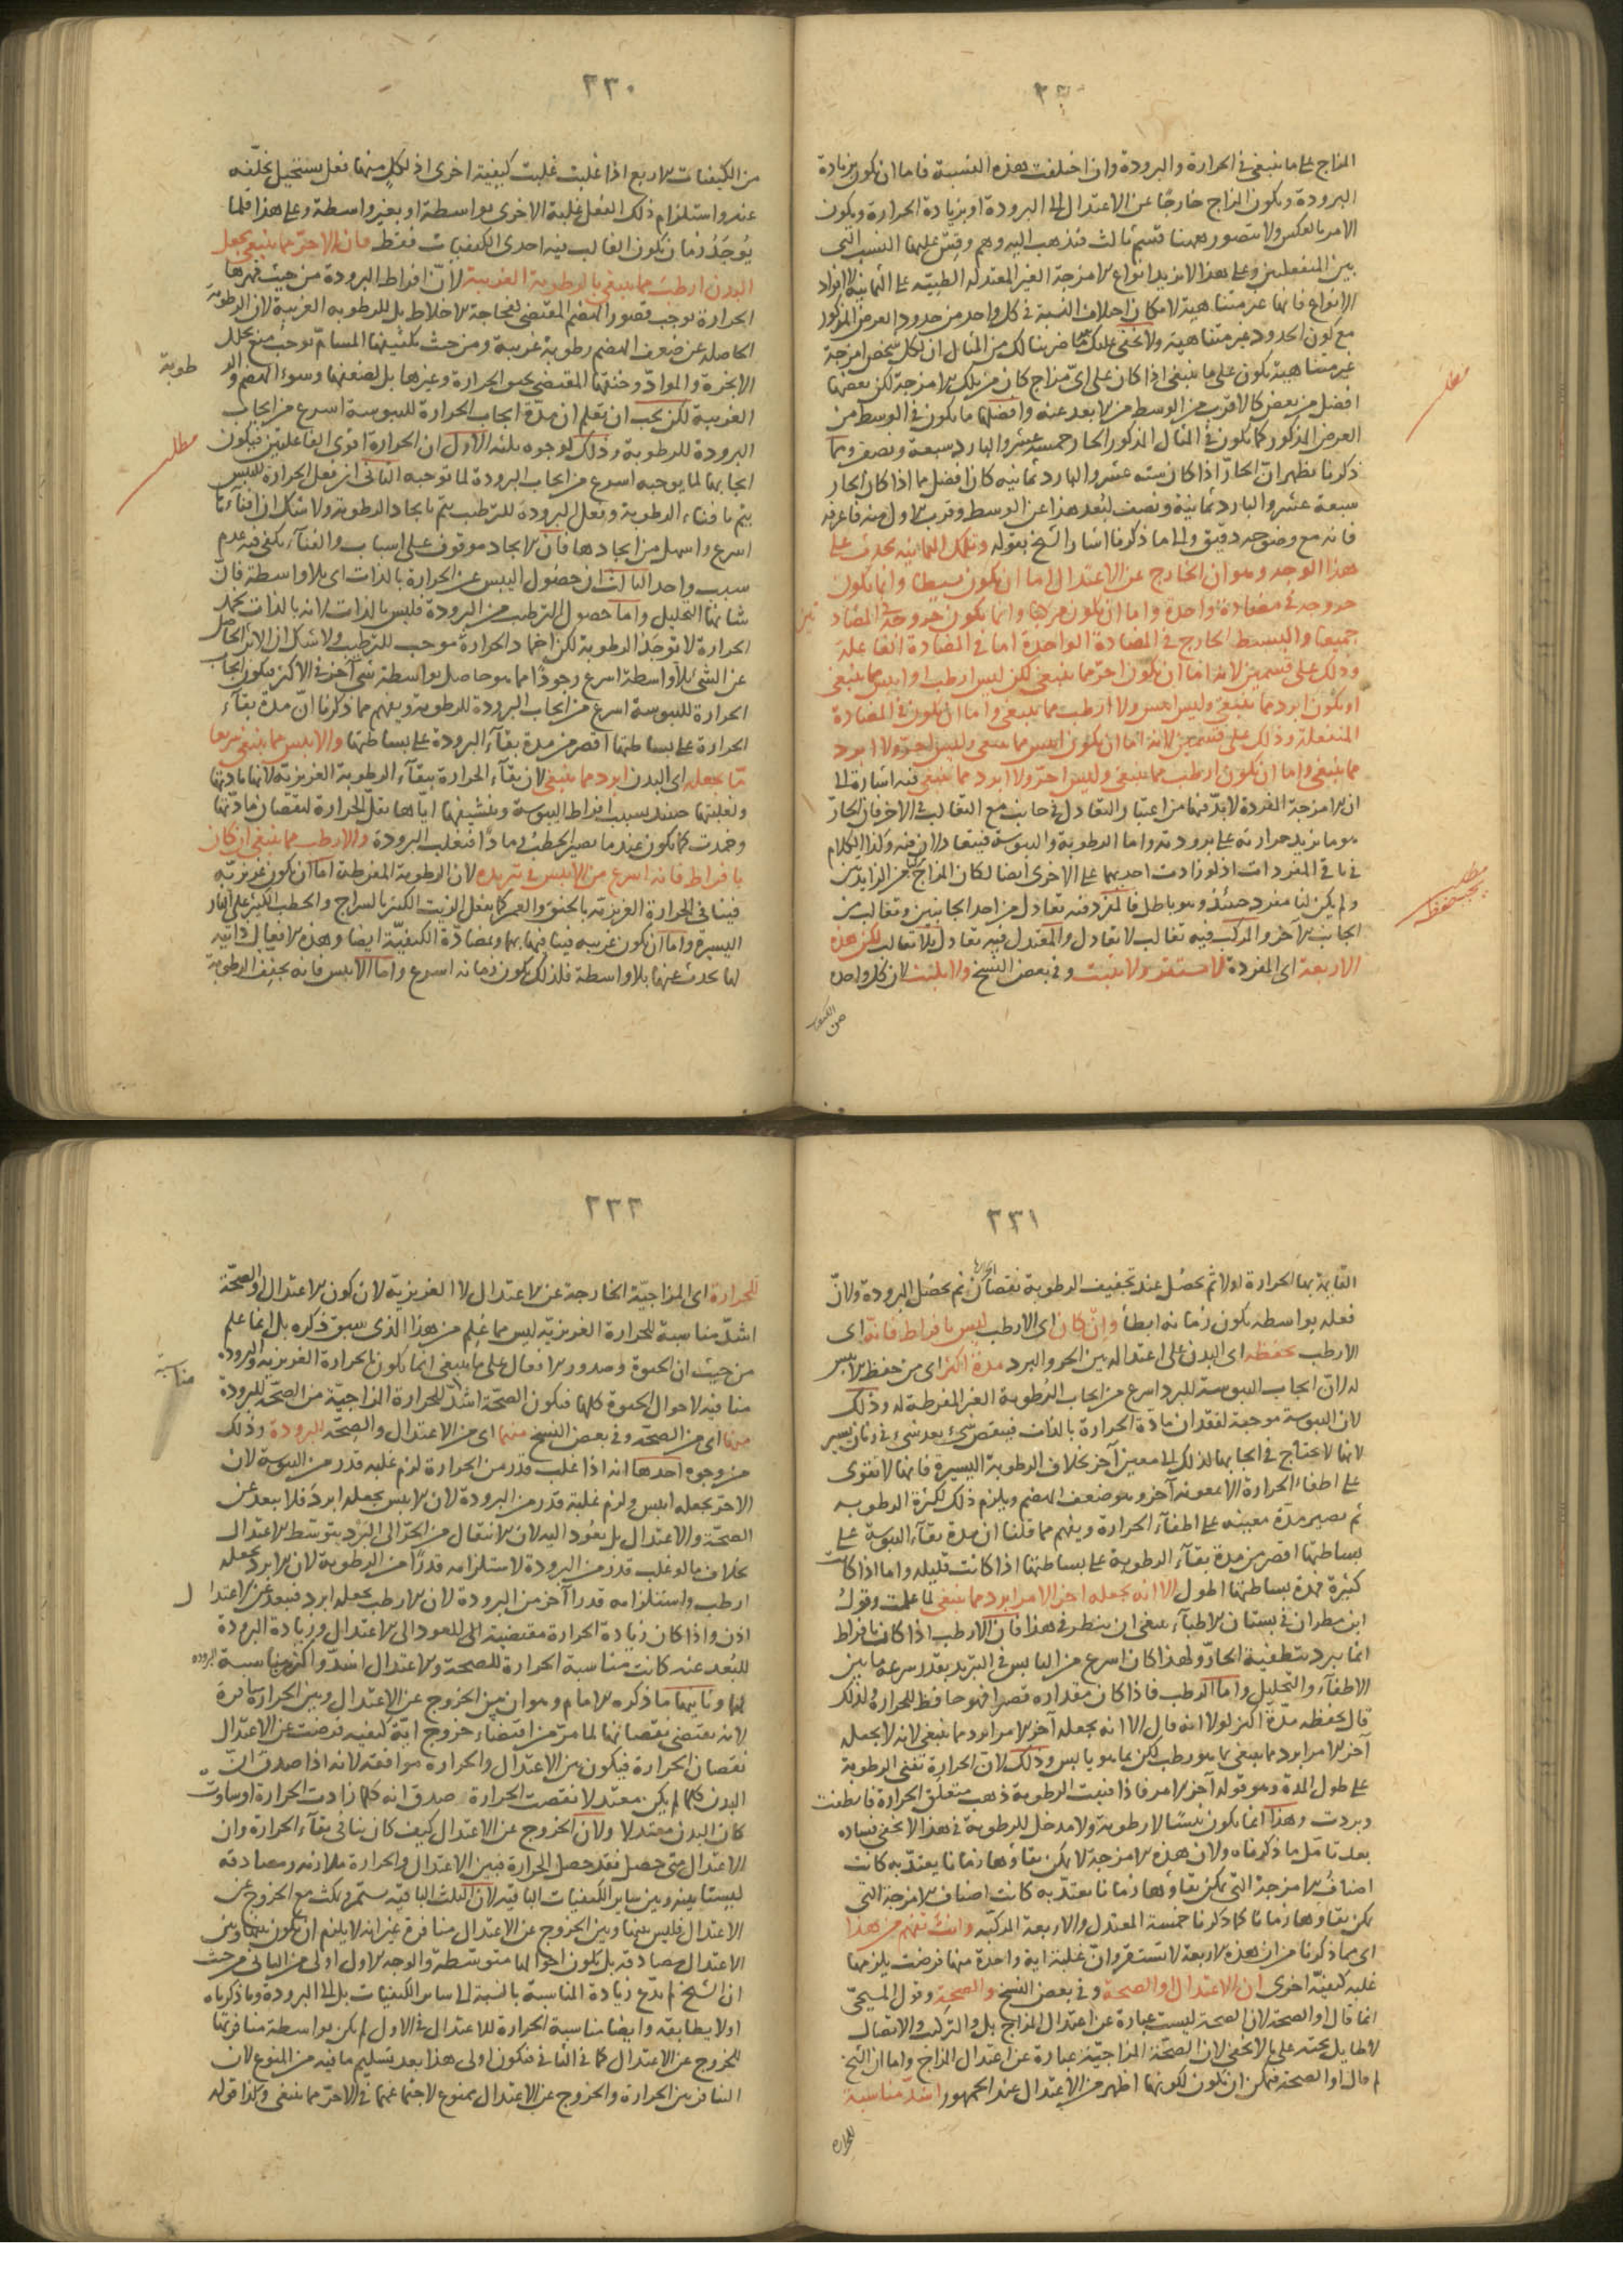 المزاج على ما ينبغى فى الحرارة والبرودة وان اختلفت هذه النسبة فاما ان يكون بزيادة
البرودة ويكون المزاج خارجًا عن الاعتدال الى البرودة او بزيادة الحرارة ويكون
الامر بالعكس ولا يتصور ههنا قسم ثالث فيذهب اليه وهم وقس عليهما النسب التى
بين المنفعلين وعلى هذا لا يزيد انواع الامزجة الغير المعتدلة الطبيّة على الثمانية لا افراد
الانواع فانها غير متناهية لامكان اختلاف النسبة فى كل واحد من حدود العرض المذكور
مع كون الحدود غير متناهية ولا يخفى عليك مما ضربنا لك من المثال ان لكل شخص امزجة
غير متناهية يكون على ما ينبغى اذا كان على اىّ مزاج كان من تلك الامزجة لكن بعضها
افضل من بعض كالاقرب من الوسط من الابعد عنه وافضلها ما يكون فى الوسط من
العرض المذكور كما يكون فى المثال المذكور الحار خمسة عشر والبارد سبعة ونصف ومما
ذكرنا يظهر انّ الحارّ اذا كان ستة عشر والبارد ثمانية كان افضل مما اذا كان الحار
سبعة عشر والبارد ثمانية ونصف لبُعد هذا عن الوسط وقرب الاول منه فاعرفه
فانه مع وضوحه دقيق والى ما ذكرنا اشار الشيخ بقوله وتلك الثمانية تحدث على
هذا الوجه وهو ان الخارج عن الاعتدال اما ان يكون بسيطا وانما يكون
خروجه فى مضادة واحدة واما ان يكون مركبا وانما يكون خروجه فى المضادتين
جميعا والبسيط الخارج فى المضادة الواحدة اما فى المضادة الفاعلة
وذلك على قسمين لانه اما ان يكون احرّ مما ينبغى لكن ليس ارطب ولا ايبس مما ينبغى
او يكون ابرد مما ينبغى وليس ايبس ولا ارطب مما ينبغى واما ان يكون فى المضادة
المنفعلة وذلك على قسمين لانه اما ان يكون ايبس مما ينبغى وليس احرّ ولا ابرد
مما ينبغى واما ان يكون ارطب مما ينبغى وليس احرّ ولا ابرد مما ينبغى فيه اشارة الى
ان الامزجة المفردة لا بدّ فيها من اعتبار التعادل فى جانب مع التغالب فى الاخر فان الحارّ
هو ما يزيد حرارته على برودته واما الرطوبة واليبوسة فيتعادلان فيه وكذا الكلام
فى باقى المفردات اذ لو زادت احديهما على الاخرى ايضا لكان المزاج من الزايدتين
ولم يكن لنا مفرد حينئذ وهو باطل فالمفرد فيه تعادل من احد الجانبين وتغالب من
الجانب الآخر والمركب فيه تغالب لا تعادل والمعتدل فيه تعادل بلا تغالب لكن هذه
الاربعة اى المفردة لا تستقر ولا تثبت وفى بعض النسخ ولا تلبث لان كل واحد
من الكيفيات
مطلب
مطلب يجب حفظه
٢٣٠
من الكيفيات الاربع اذا غلبت غلبت كيفية اخرى اذ لكلٍ منها فعل يستحيل تخلّفه
عنه واستلزام ذلك الفعل غلبة الاخرى بواسطة او بغير واسطة وعلى هذا فلما
يُوجَدُ زمان يكون الغالب فيه احدى الكيفيات فقط فان الاحرّ مما ينبغى يجعل
البدن ارطب مما ينبغى بالرطوبة الغريبة لانّ افراط البرودة من حيث قهرها
الحرارة يوجب قصور الهضم المقتضى لفجاجة الاخلاط بل للرطوبة الغريبة لان الرطوبة
الحاصلة عن ضعف الهضم رطوبة غريبة ومن حيث تكثيفها المسامّ يوجب منع تحلل
الابخرة والموادّ وخنقها المقتضى لحقن الحرارة وغيرها بل لضعفها وسوء الهضم والرطوبة
الغريبة لكن يجب ان تعلم ان مدّة ايجاب الحرارة لليبوسة اسرع من ايجاب
البرودة للرطوبة وذلك لوجوه ثلثة الاول ان الحرارة اقوى الفاعلتين فيكون
ايجابها لما يوجبه اسرع من ايجاب البرودة لما توجبه الثانى ان فعل الحرارة لليبس
يتم بافناء الرطوبة وفعل البرودة للترطيب يتم بايجاد الرطوبة ولا شك ان افناءها
اسرع واسهل من ايجادها فان الايجاد موقوف على اسباب والفناء يكفى فيه عدم
سبب واحد الثالث ان حصول اليبس عن الحرارة بالذات اى بلا واسطة فان
شانها التحليل واما حصول الترطيب من البرودة فليس بالذات لانه بالذات يخمد
الحرارة لا توجد الرطوبة لكن اخماد الحرارة موجب للترطيب ولا شك ان الاثر الحاصل
عن الشئ بلا واسطة اسرع وجودًا مما هو حاصل بواسطة شئ آخر فى الاكثر فيكون ايجاب
الحرارة لليبوسة اسرع من ايجاب البرودة للرطوبة ويفهم مما ذكرنا انّ مدة بقاء
الحرارة على بساطتها اقصر من مدة بقاء البرودة على بساطتها والايبس مما ينبغى سريعا
مّا يجعله اى البدن ابرد مما ينبغى لان بقاء الحرارة ببقاء الرطوبة الغريزيّة لانها مادتها
وخمدت كما يكون عند ما يصير الحطب رمادًا فتغلب البرودة والارطب مما ينبغى ان كان
بافراط فانه اسرع من الايبس فى تبريده لان الرطوبة المفرطة اما ان يكون غريزيّة
فينافى الحرارة الغريزيّة بالخنق والغمر كما يفعل الزيت الكثير بالسراج والحطب الكثير على النار
اليسيرة واما ان يكون غريبة فينافيها بهما وبمضادّة الكيفيّة ايضا وهذه الافعال ذاتية
لما يحدث عنها بلا واسطة فلذلك يكون زمانه اسرع واما الايبس فانه يجفف الرطوبة
مطلب
٢٣١
القايمة بها الحرارة اولا ثم يحصل عند تجفيف الرطوبة نقصان الحرارة ثم يحصل البرودة ولانّ
فعله بواسطة يكون زمانه ابطأ وانْ كان اى الارطب ليس بافراط فانّه اى
الارطب يحفظه اى البدن على اعتداله بين الحر والبرد مدة اكثر اى من حفظ الايبس
له لانّ ايجاب اليبوسة للبرد اسرع من ايجاب الرطوبة الغير المفرطة له وذلك
لان اليبوسة موجبة لفقدان مادّة الحرارة بالذات فينقص شئ بعد شئ فى زمان يسير
لانها لا تحتاج فى ايجابها لذلك الى معين آخر بخلاف الرطوبة اليسيرة فانها لا تقوى
على اطفاء الحرارة الا بمعونة آخر وهو ضعف الهضم ويلزم ذلك لكثرة الرطوبة
ثم يصير مدّة معينه على اطفاء الحرارة ويفهم مما قلنا ان مدة بقاء اليبوسة على
بساطتها اقصر من مدة بقاء الرطوبة على بساطتها اذا كانت قليلة واما اذا كانت
كثيرة فمدة بساطتها اطول الا انه يجعله اخر الامر ابرد مما ينبغى لما علمت وقول
ابن مطران فى بستان الاطبّاء ينبغى ان ينظر فى هذا فان الارطب اذا كان بافراط
انما يبرد بتطفية الحارّ ولهذا كان اسرع من اليابس فى التبريد بقدر سرعة ما بين
الاطفاء والتحليل واما الرطب فاذا كان مقداره قصرا فهو حافظ للحرارة ولذلك
قال يحفظه مدّة اكثر لولا انه قال الا انه يجعله آخر الامر ابرد مما ينبغى لانه لا يجعله
آخر الامر ابرد مما ينبغى بما هو رطب لكن بما هو يابس وذلك لان الحرارة تفنى الرطوبة
على طول المدة وهو قوله آخر الامر فاذا فنيت الرطوبة ذهب متعلق الحرارة فانطفت
وبردت وهذا انما يكون يبسًا لا رطوبة ولا مدخل للرطوبة فى هذا لا يخفى فساده
بعد تامّل ما ذكرناه ولان هذه الامزجة لا يمكن بقاؤها زمانا يعتدّ به كانت
اصناف الامزجة التى يمكن بقاؤها زمانا يعتد به كانت اصناف الامزجة التى
يمكن بقاؤها زمانا كما ذكرنا خمسة المعتدل والاربعة المركبة وانت تفهم من هذا
اى مما ذكرنا من ان هذه الاربعة لا تستقر وانّ غلبة اية واحدة منها فرضت يلزمها
غلبة كيفيّة اخرى ان الاعتدال او الصحة وفى بعض النسخ والصحة وقول المسيحى
انما قال او الصحة لان الصحة ليست عبارة عن اعتدال المزاج بل والتركيب والاتصال
لا طايل تحته على ما لا يخفى لان الصحّة المزاجيّة عبارة عن اعتدال المزاج واما ان الشيخ
لم قال او الصحة فيمكن ان يكون لكونها اظهر من الاعتدال عند الجمهور اشدّ مناسبة
للحرارة
٢٣٢
للحرارة اى المزاجيّة الخارجة عن الاعتدال لا الغريزيّة لان كون الاعتدال او الصحّة
اشدّ مناسبة للحرارة الغريزيّة ليس مما عُلِم من هذا الذى سبق ذكره بل انما علم
من حيث ان الحيوة وصدور الافعال على ما ينبغى انما يكون بالحرارة الغريزية والبرودة
منافية لاحوال الحيوة كلها فيكون الصحّة اشدّ مناسبة للحرارة المزاجيّة من الصحّة للبرودة
منها اى من الصحّة وفى بعض النسخ منهما اى من الاعتدال والصحّة للبرودة وذلك
من وجوه احدها انه اذا غلب قدر من الحرارة لزم غلبة قدر من اليبوسة لان
الاحرّ يجعله ايبس ولزم غلبة قدر من البرودة لان الايبس يجعله ابرد فلا يبعد عن
الصحّة والاعتدال بل يعُود اليه لان الانتقال من الحرّ الى البَرْد بتوسّط الاعتدال
بخلاف ما لو غلب قدر من البرودة لاستلزامه قدرًا من الرطوبة لان الابرد يجعله
ارطب واستلزامه قدرا آخر من البرودة لان الارطب يجعله ابرد فيبعد عن الاعتدال
اذن واذا كان زيادة الحرارة مقتضية للعود الى الاعتدال وزيادة البرودة
للبُعد عنه كانت مناسبة الحرارة للصحة والاعتدال اشدّ واكثر من مناسبة البرودة
لها وثانيها ما ذكره الامام وهو ان بين الخروج عن الاعتدال وبين الحرارة منافرة
لانه يقتضى نقصانها لما مرّ من اقتضاء خروج ايّة كيفية فرضت عن الاعتدال
نقصان الحرارة فيكون بين الاعتدال والحرارة موافقة لانه اذا صدق انّ
البدن كلما لم يكن معتدلا نقصت الحرارة صدق انه كلما زادت الحرارة او ساوت
كان البدن معتدلا ولان الخروج عن الاعتدال كيف كان ينافى بقاء الحرارة وان
الاعتدال متى حصل فقد حصل الحرارة فبين الاعتدال والحرارة ملازمة ومصادقة
ليستا بينه وبين ساير الكيفيات الباقية لان الثلث الباقية يستمر ويمكث مع الخروج عن
الاعتدال فليس بينها وبين الخروج عن الاعتدال منافرة غير انه لا يلزم ان يكون بينها وبين
الاعتدال مصادقة بل يكون احوالها متوسّطة والوجه الاول اولى من الثانى من حيث
ان الشيخ لم يدّع زيادة المناسبة بالنسبة الى ساير الكيفيات بل الى البرودة وما ذكرناه
اولا يطابقه وايضا مناسبة الحرارة للاعتدال فى الاول لم يكن بواسطة منافرتها
للخروج عن الاعتدال كما فى الثانى فيكون اولى هذا بعد تسليم ما فيه من المنوع لان
التنافر بين الحرارة والخروج عن الاعتدال ممنوع لاجتماعهما فى الاحرّ مما ينبغى وكذا قوله